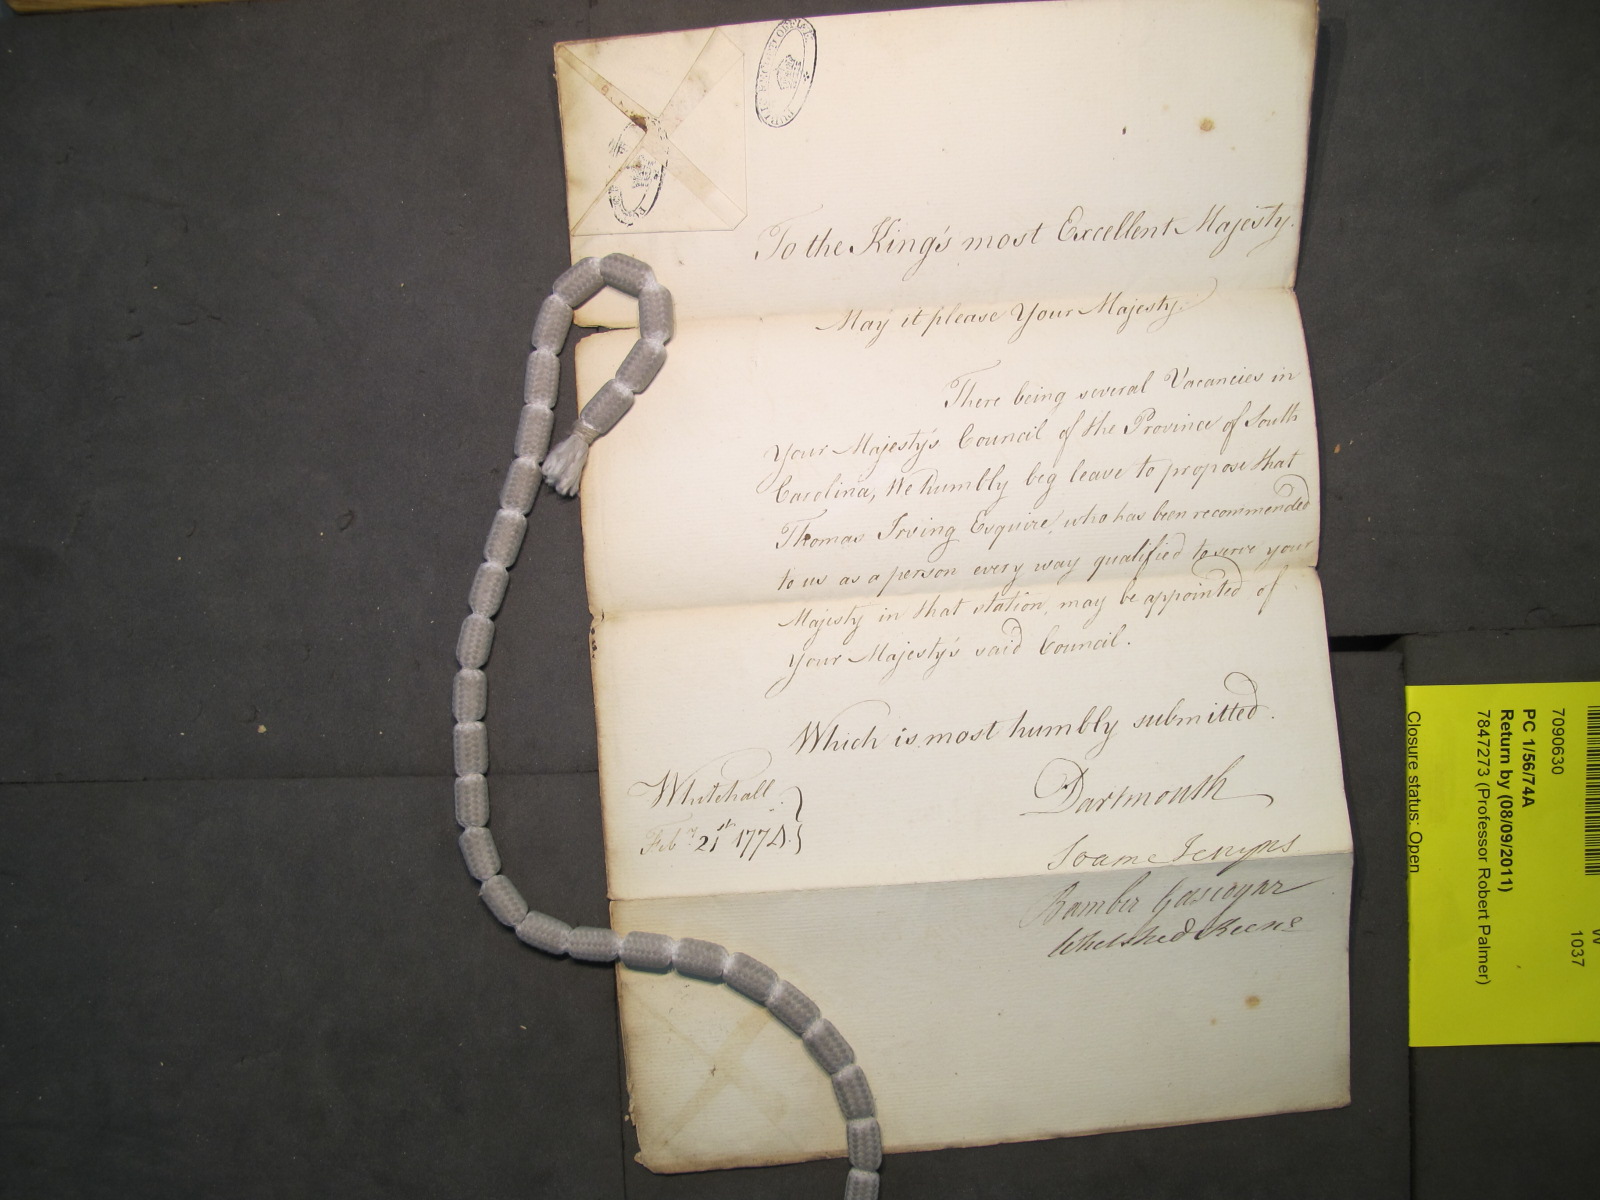 PUBLIC RECORD OFFICE
To the King's most Excellent Majesty.
May it please Your Majesty.
There being several Vacancies in
Your Majesty's Council of the Province of South
Carolina, We humbly beg leave to propose that
Thomas Irving Esquire, who has been recommended
to us as a person every way qualified to serve your
Majesty in that station, may be appointed of
Your Majesty's said Council.
Which is most humbly submitted.
Whitehall
Feb.ry 21st 1774.
Dartmouth
Soame Jenyns
Bamber Gascoyne
Whitshed Keene
1037
7090630
PC 1/56/74A
Return by (08/09/2011)
7847273 (Professor Robert Palmer)
Closure status: Open